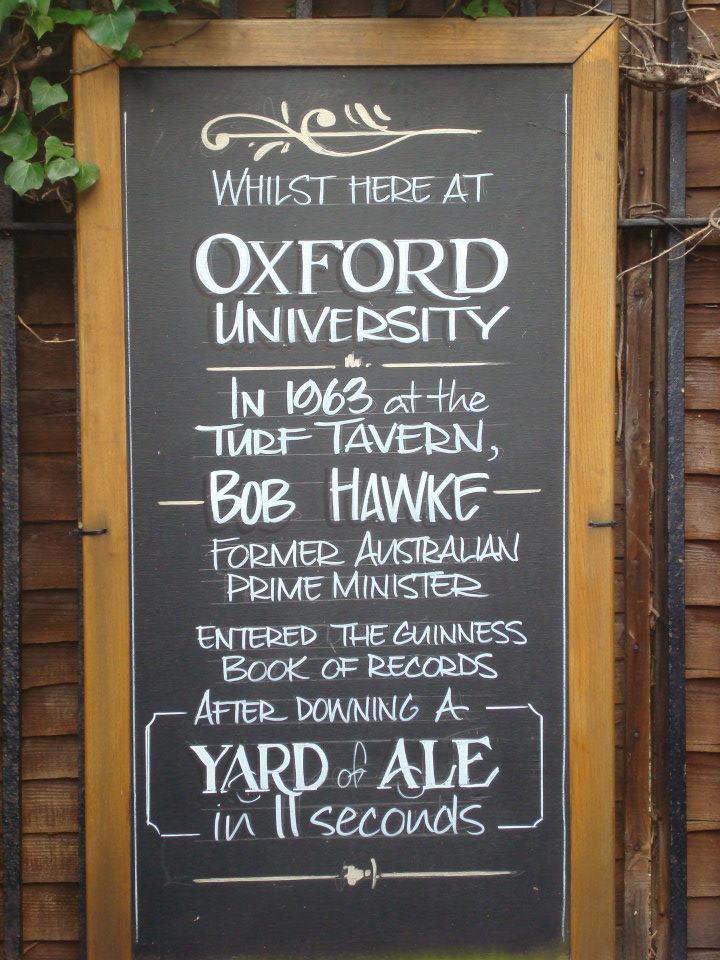 WHILST HERE AT
OXFORD
UNIVERSITY
IN 1963 at the
TURF TAVERN,
BOB HAWKE
FORMER AUSTRALIAN
PRIME MINISTER
ENTERED THE GUINNESS
BOOK OF RECORDS
AFTER DOWNING A
YARD of ALE
in 11 seconds